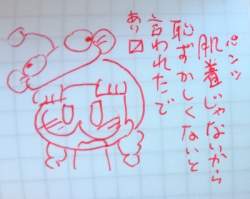 パンツ
肌着じゃないから
恥ずかしくないと
言われたで
あり口